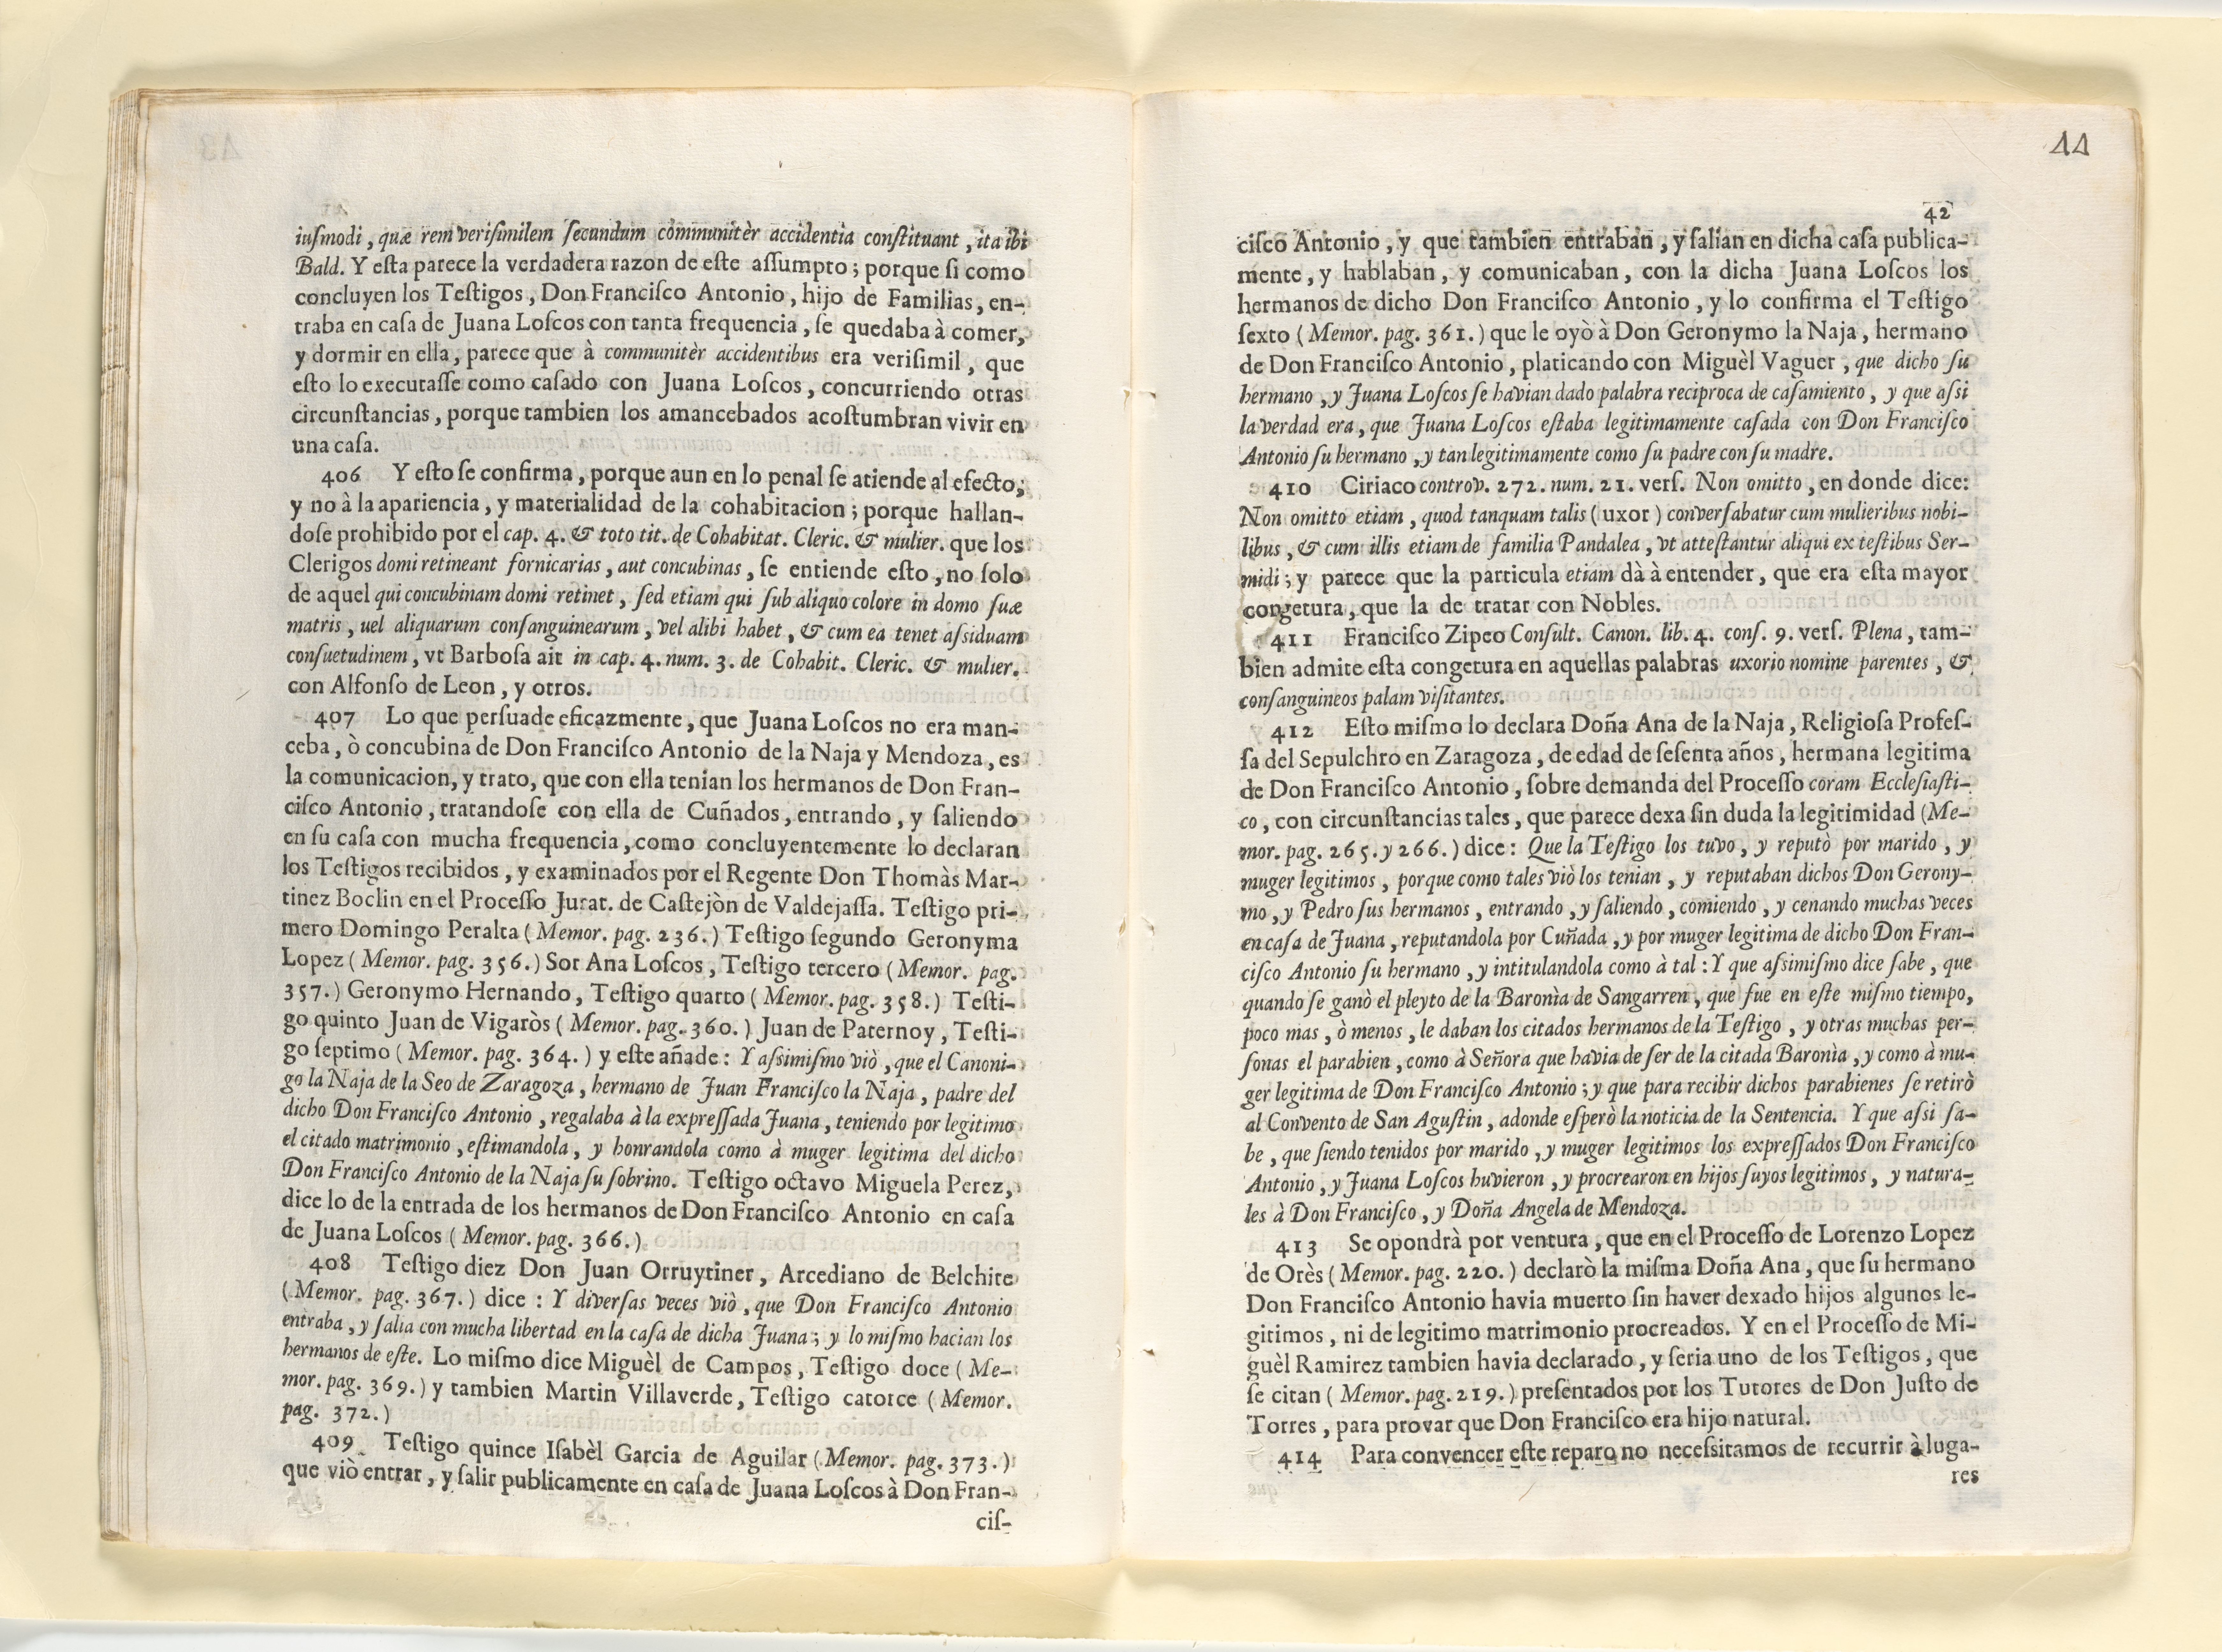 iuſmodi, quæ rem veriſimilem ſecundum communitèr accidentia conſtituant, ita ibi
Bald. Y eſta parece la verdadera razon de eſte aſſumpto; porque ſi como
concluyen los Teſtigos, Don Franciſco Antonio, hijo de Familias, en-
traba en caſa de Juana Loſcos con tanta frequencia, ſe quedaba à comer,
y dormir en ella, parece que à communitèr accidentibus era veriſimil, que
eſto lo executaſſe como caſado con Juana Loſcos, concurriendo otras
circunſtancias, porque tambien los amancebados acoſtumbran vivir en
una caſa.
406 Y eſto ſe confirma, porque aun en lo penal ſe atiende al efecto,
y no à la apariencia, y materialidad de la cohabitacion; porque hallan-
doſe prohibido por el cap. 4. & toto tit. de Cohabitat. Cleric. & mulier. que los
Clerigos domi retineant fornicarias, aut concubinas, ſe entiende eſto, no ſolo
de aquel qui concubinam domi retinet, ſed etiam qui ſub aliquo colore in domo ſuæ
matris, uel aliquarum conſanguinearum, vel alibi habet, & cum ea tenet aſsiduam
conſuetudinem, vt Barboſa ait in cap. 4. num. 3. de Cohabit. Cleric. & mulier.
con Alfonſo de Leon, y otros.
407 Lo que perſuade eficazmente, que Juana Loſcos no era man-
ceba, ò concubina de Don Franciſco Antonio de la Naja y Mendoza, es
la comunicacion, y trato, que con ella tenian los hermanos de Don Fran-
ciſco Antonio, tratandoſe con ella de Cuñados, entrando, y ſaliendo
en ſu caſa con mucha frequencia, como concluyentemente lo declaran
los Teſtigos recibidos, y examinados por el Regente Don Thomàs Mar-
tinez Boclin en el Proceſſo Jurat. de Caſtejòn de Valdejaſſa. Teſtigo pri-
mero Domingo Peralta (Memor. pag. 236.) Teſtigo ſegundo Geronyma
Lopez (Memor. pag. 356.) Sor Ana Loſcos, Teſtigo tercero (Memor. pag.
357.) Geronymo Hernando, Teſtigo quarto (Memor. pag. 358.) Teſti-
go quinto Juan de Vigaròs (Memor. pag. 360.) Juan de Paternoy, Teſti-
go ſeptimo (Memor. pag. 364.) y eſte añade: Y aſsimiſmo viò, que el Canoni-
go la Naja de la Seo de Zaragoza, hermano de Juan Franciſco la Naja, padre del
dicho Don Franciſco Antonio, regalaba à la expreſſada Juana, teniendo por legitimo
el citado matrimonio, eſtimandola, y honrandola como à muger legitima del dicho
Don Franciſco Antonio de la Naja ſu ſobrino. Teſtigo octavo Miguela Perez,
dice lo de la entrada de los hermanos de Don Franciſco Antonio en caſa
de Juana Loſcos (Memor. pag. 366.)
408 Teſtigo diez Don Juan Orruytiner, Arcediano de Belchite
(Memor. pag. 367.) dice: Y diverſas veces viò, que Don Franciſco Antonio
entraba, y ſalia con mucha libertad en la caſa de dicha Juana; y lo miſmo hacian los
hermanos de eſte. Lo miſmo dice Miguèl de Campos, Teſtigo doce (Me-
mor. pag. 369.) y tambien Martin Villaverde, Teſtigo catorce (Memor.
pag. 372.)
409 Teſtigo quince Iſabèl Garcia de Aguilar (Memor. pag. 373.)
que viò entrar, y ſalir publicamente en caſa de Juana Loſcos à Don Fran-
ciſ-
44
42
ciſco Antonio, y que tambien entraban, y ſalian en dicha caſa publica-
mente, y hablaban, y comunicaban, con la dicha Juana Loſcos los
hermanos de dicho Don Franciſco Antonio, y lo confirma el Teſtigo
ſexto (Memor. pag. 361.) que le oyò à Don Geronymo la Naja, hermano
de Don Franciſco Antonio, platicando con Miguèl Vaguer, que dicho ſu
hermano, y Juana Loſcos ſe havian dado palabra reciproca de caſamiento, y que aſsi
la verdad era, que Juana Loſcos eſtaba legitimamente caſada con Don Franciſco
Antonio ſu hermano, y tan legitimamente como ſu padre con ſu madre.
410 Ciriaco controv. 272. num. 21. verſ. Non omitto, en donde dice:
Non omitto etiam, quod tanquam talis (uxor) converſabatur cum mulieribus nobi-
libus, & cum illis etiam de familia Pandalea, vt atteſtantur aliqui ex teſtibus Ser-
midi; y parece que la particula etiam dà à entender, que era eſta mayor
congetura, que la de tratar con Nobles.
411 Franciſco Zipeo Conſult. Canon. lib. 4. conſ. 9. verſ. Plena, tam-
bien admite eſta congetura en aquellas palabras uxorio nomine parentes, &
conſanguineos palam viſitantes.
412 Eſto miſmo lo declara Doña Ana de la Naja, Religioſa Profeſ-
ſa del Sepulchro en Zaragoza, de edad de ſeſenta años, hermana legitima
de Don Franciſco Antonio, ſobre demanda del Proceſſo coram Eccleſiaſti-
co, con circunſtancias tales, que parece dexa ſin duda la legitimidad (Me-
mor. pag. 265. y 266.) dice: Que la Teſtigo los tuvo, y reputò por marido, y
muger legitimos, porque como tales viò los tenian, y reputaban dichos Don Gerony-
mo, y Pedro ſus hermanos, entrando, y ſaliendo, comiendo, y cenando muchas veces
en caſa de Juana, reputandola por Cuñada, y por muger legitima de dicho Don Fran-
ciſco Antonio ſu hermano, y intitulandola como à tal: Y que aſsimiſmo dice ſabe, que
quando ſe ganò el pleyto de la Baronìa de Sangarren, que fue en eſte miſmo tiempo,
poco mas, ò menos, le daban los citados hermanos de la Teſtigo, y otras muchas per-
ſonas el parabien, como à Señora que havia de ſer de la citada Baronìa, y como à mu-
ger legitima de Don Franciſco Antonio; y que para recibir dichos parabienes ſe retirò
al Convento de San Aguſtin, adonde eſperò la noticia de la Sentencia. Y que aſsi ſa-
be, que ſiendo tenidos por marido, y muger legitimos los expreſſados Don Franciſco
Antonio, y Juana Loſcos huvieron, y procrearon en hijos ſuyos legitimos, y natura-
les à Don Franciſco, y Doña Angela de Mendoza.
413 Se opondrà por ventura, que en el Proceſſo de Lorenzo Lopez
de Orès (Memor. pag. 220.) declarò la miſma Doña Ana, que ſu hermano
Don Franciſco Antonio havia muerto ſin haver dexado hijos algunos le-
gitimos, ni de legitimo matrimonio procreados. Y en el Proceſſo de Mi-
guèl Ramirez tambien havia declarado, y ſeria uno de los Teſtigos, que
ſe citan (Memor. pag. 219.) preſentados por los Tutores de Don Juſto de
Torres, para provar que Don Franciſco era hijo natural.
414 Para convencer eſte reparo no neceſsitamos de recurrir à luga-
res